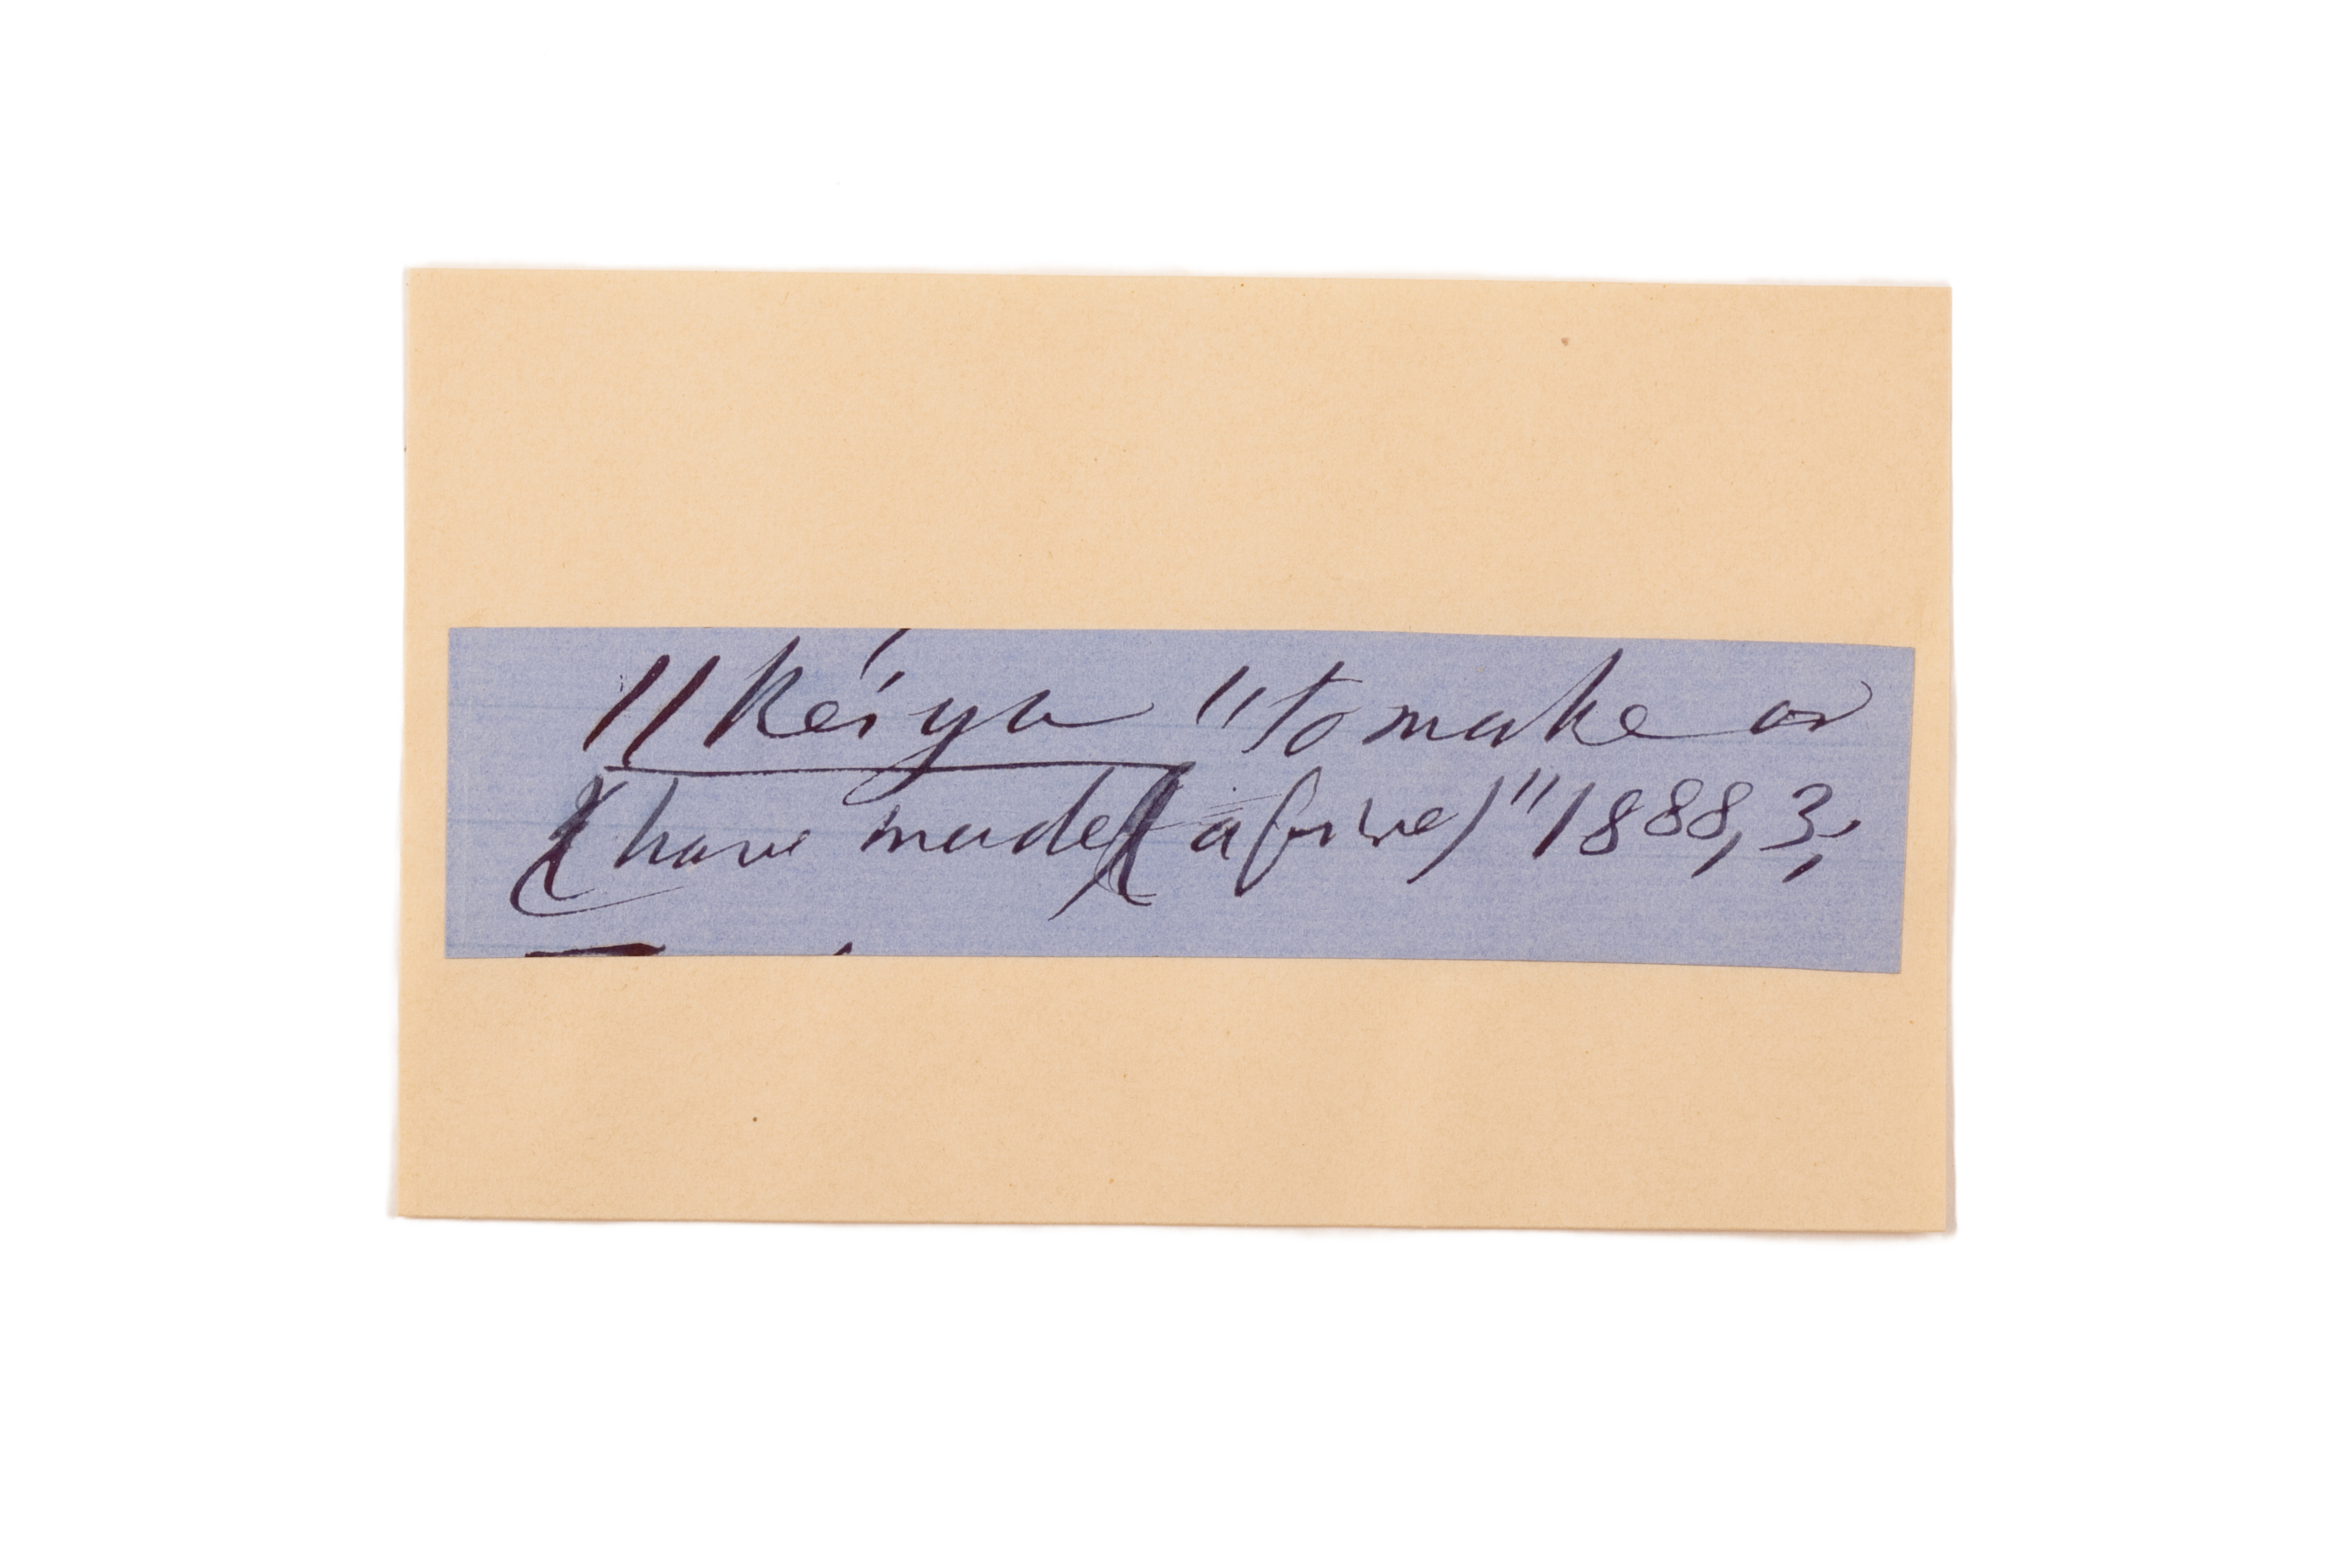 //kéiya "to make or
(have made) (a fire)" 1888, 3;